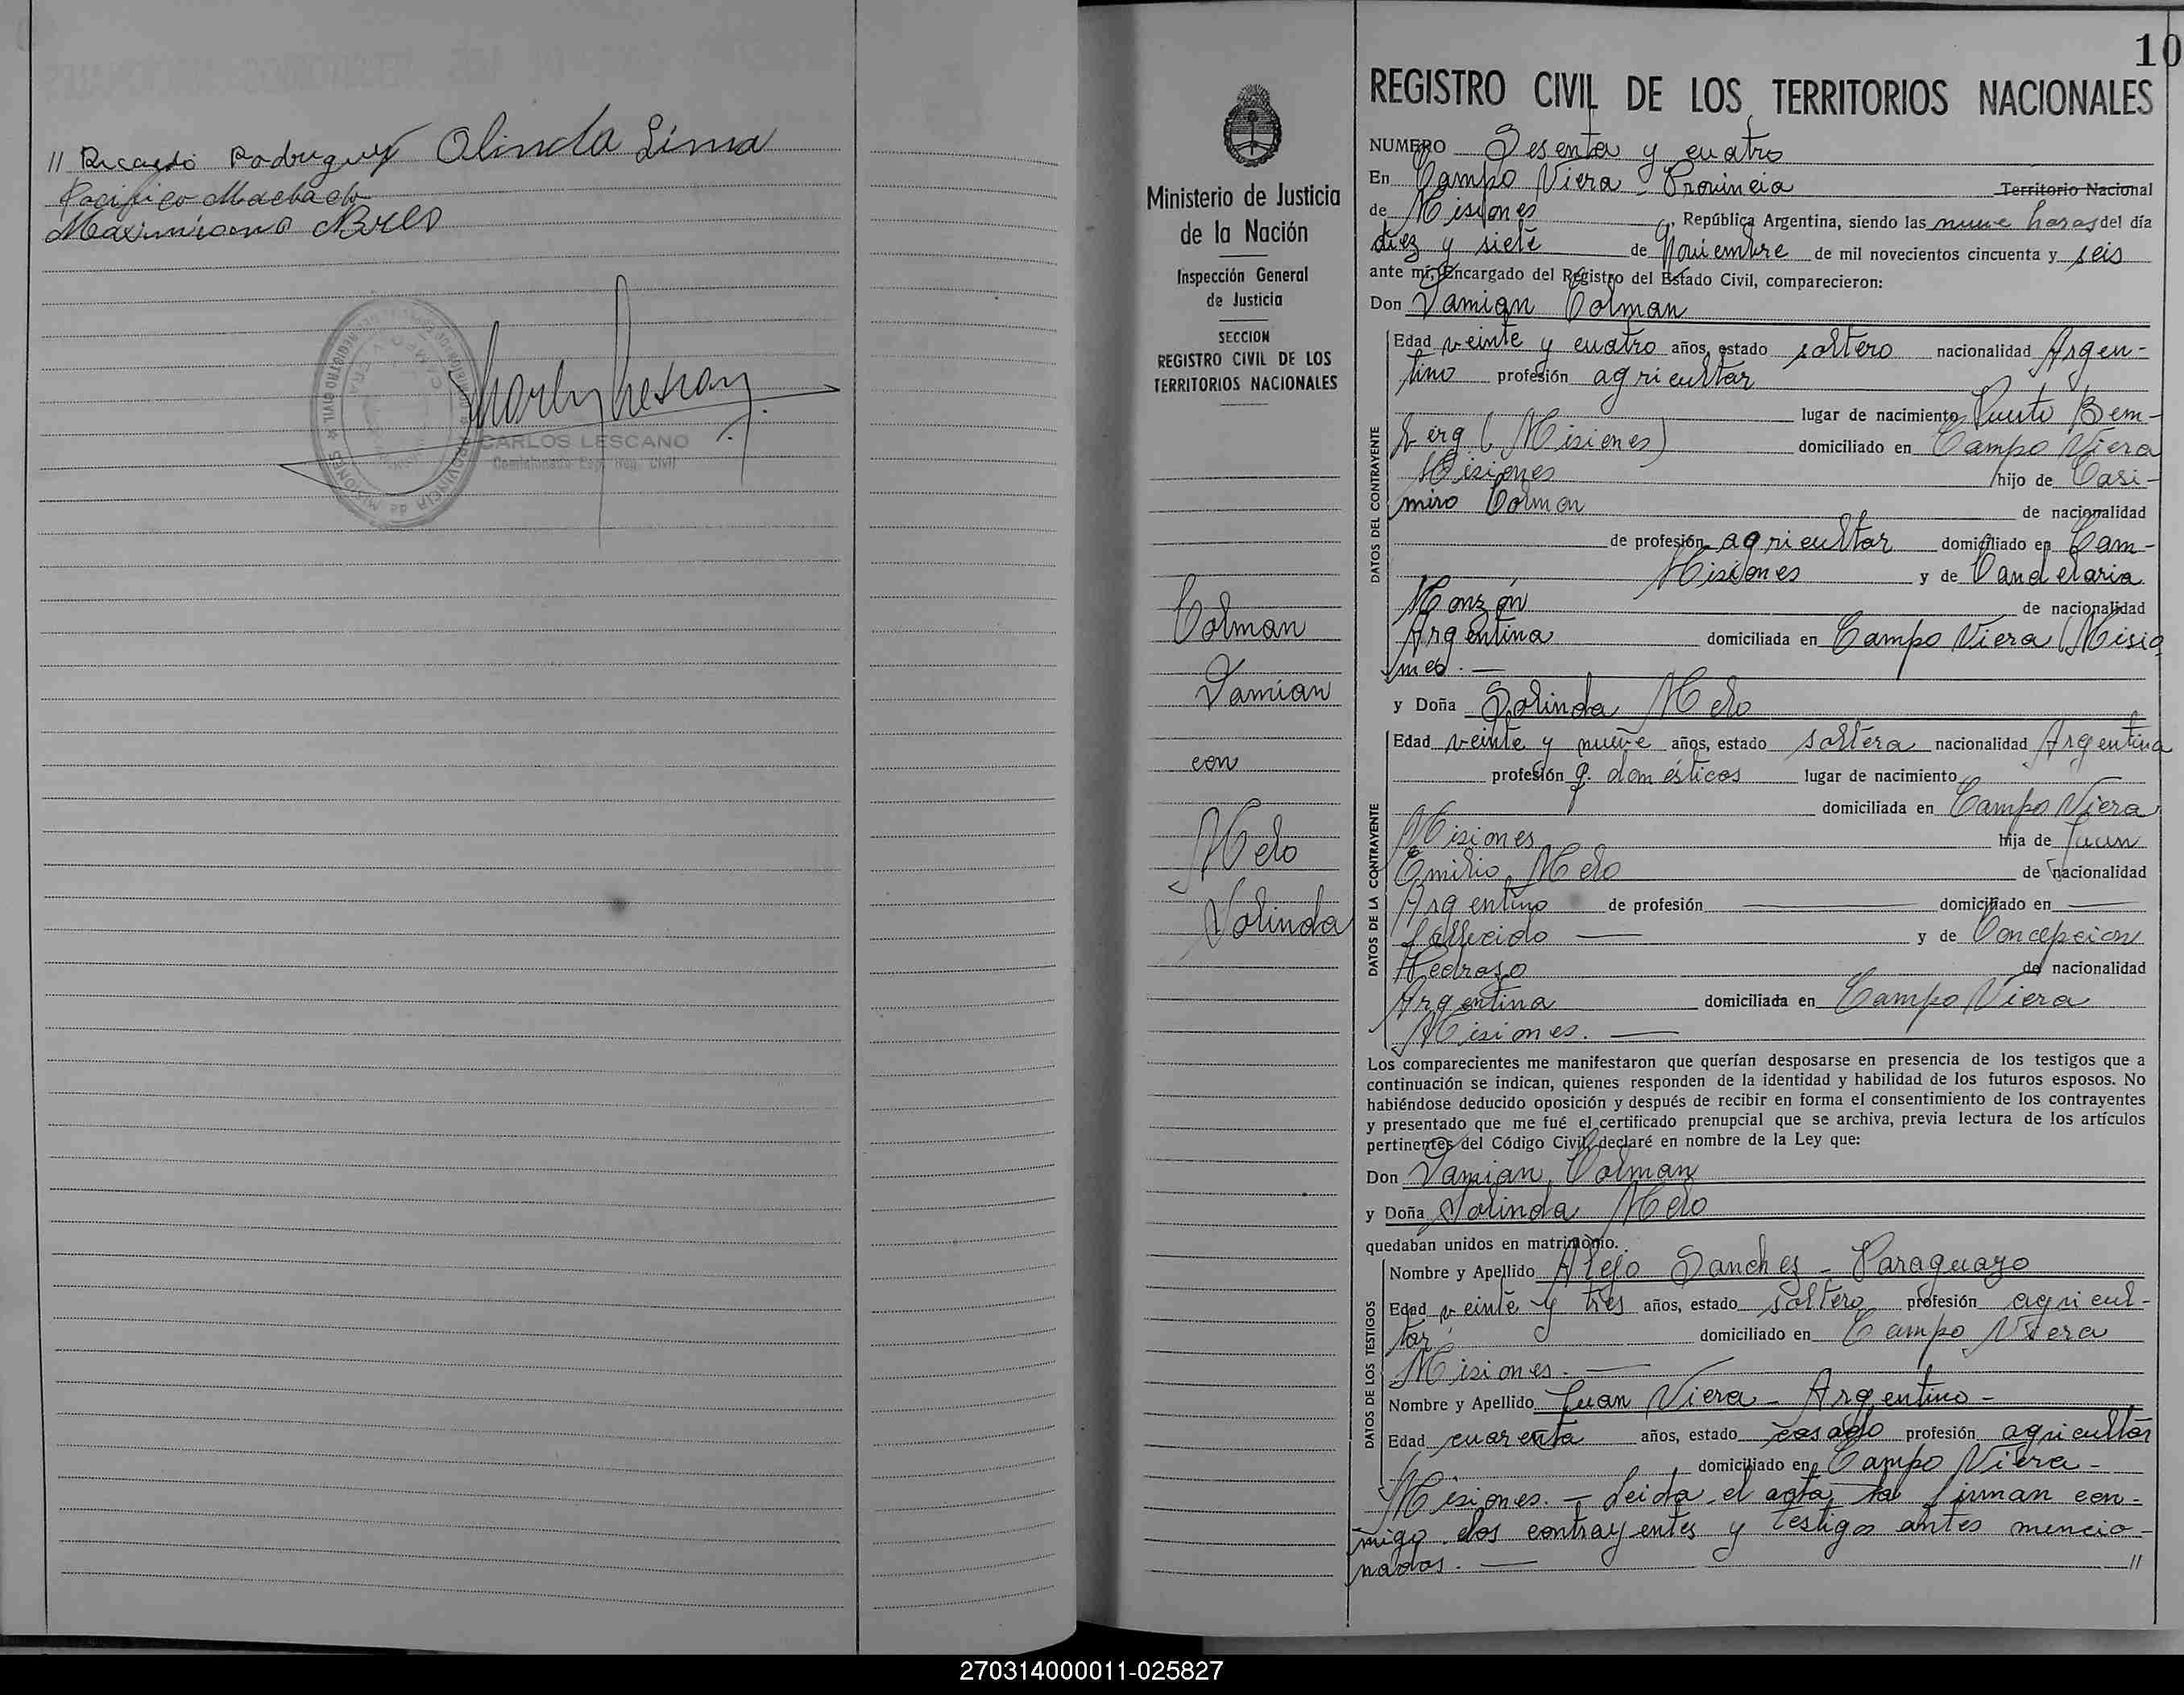 // Ricardo Rodriguez Olinda Lima
Pacifico Machado
Maximiano
CARLOS LESCANO
REGISTRO CIVIL
PROVINCIA de MISIONES
10
Ministerio de Justicia
de la Nación
Inspección General
de Justicia
SECCION
REGISTRO CIVIL DE LOS
TERRITORIOS NACIONALES
Colman
Damian
con
Melo
Solinda
REGISTRO CIVIL DE LOS TERRITORIOS NACIONALES
NUMERO Sesenta y cuatro
En Campo Viera - Provincia Territorio Nacional
de Misiones, República Argentina, siendo las nueve horas del día
diez y siete de Noviembre de mil novecientos cincuenta y seis
ante mí, Encargado del Registro del Estado Civil, comparecieron:
Don Damian Colman
DATOS DEL CONTRAYENTE
Edad veinte y cuatro años, estado soltero nacionalidad Argen-
tino profesión agricultor
lugar de nacimiento Puerto Bem-
berg (Misiones) domiciliado en Campo Viera
Misiones hijo de Casi-
miro Colman de nacionalidad
de profesión agricultor domiciliado en Cam-
Misiones y de Candelaria
Monzón de nacionalidad
Argentina domiciliada en Campo Viera (Misio
nes. —
y Doña Solinda Melo
DATOS DE LA CONTRAYENTE
Edad veinte y nueve años, estado soltera nacionalidad Argentina
profesión q. domésticos lugar de nacimiento
domiciliada en Campo Viera
Misiones hija de Juan
Emilio Melo de nacionalidad
Argentino de profesión — domiciliado en —
fallecido — y de Concepcion
Pedrozo de nacionalidad
Argentina domiciliada en Campo Viera
Misiones. —
Los comparecientes me manifestaron que querían desposarse en presencia de los testigos que a
continuación se indican, quienes responden de la identidad y habilidad de los futuros esposos. No
habiéndose deducido oposición y después de recibir en forma el consentimiento de los contrayentes
y presentado que me fué el certificado prenupcial que se archiva, previa lectura de los artículos
pertinentes del Código Civil, declaré en nombre de la Ley que:
Don Damian Colman
y Doña Solinda Melo
quedaban unidos en matrimonio.
DATOS DE LOS TESTIGOS
Nombre y Apellido Alejo Sanches - Paraguayo
Edad veinte y tres años, estado soltero profesión agricul-
tor domiciliado en Campo Viera
Misiones. —
Nombre y Apellido Juan Viera - Argentino -
Edad cuarenta años, estado casado profesión agricultor
domiciliado en Campo Viera -
Misiones. — Leida el acta la firman con-
migo los contrayentes y testigos antes mencio-
nados. — //
270314000011-025827